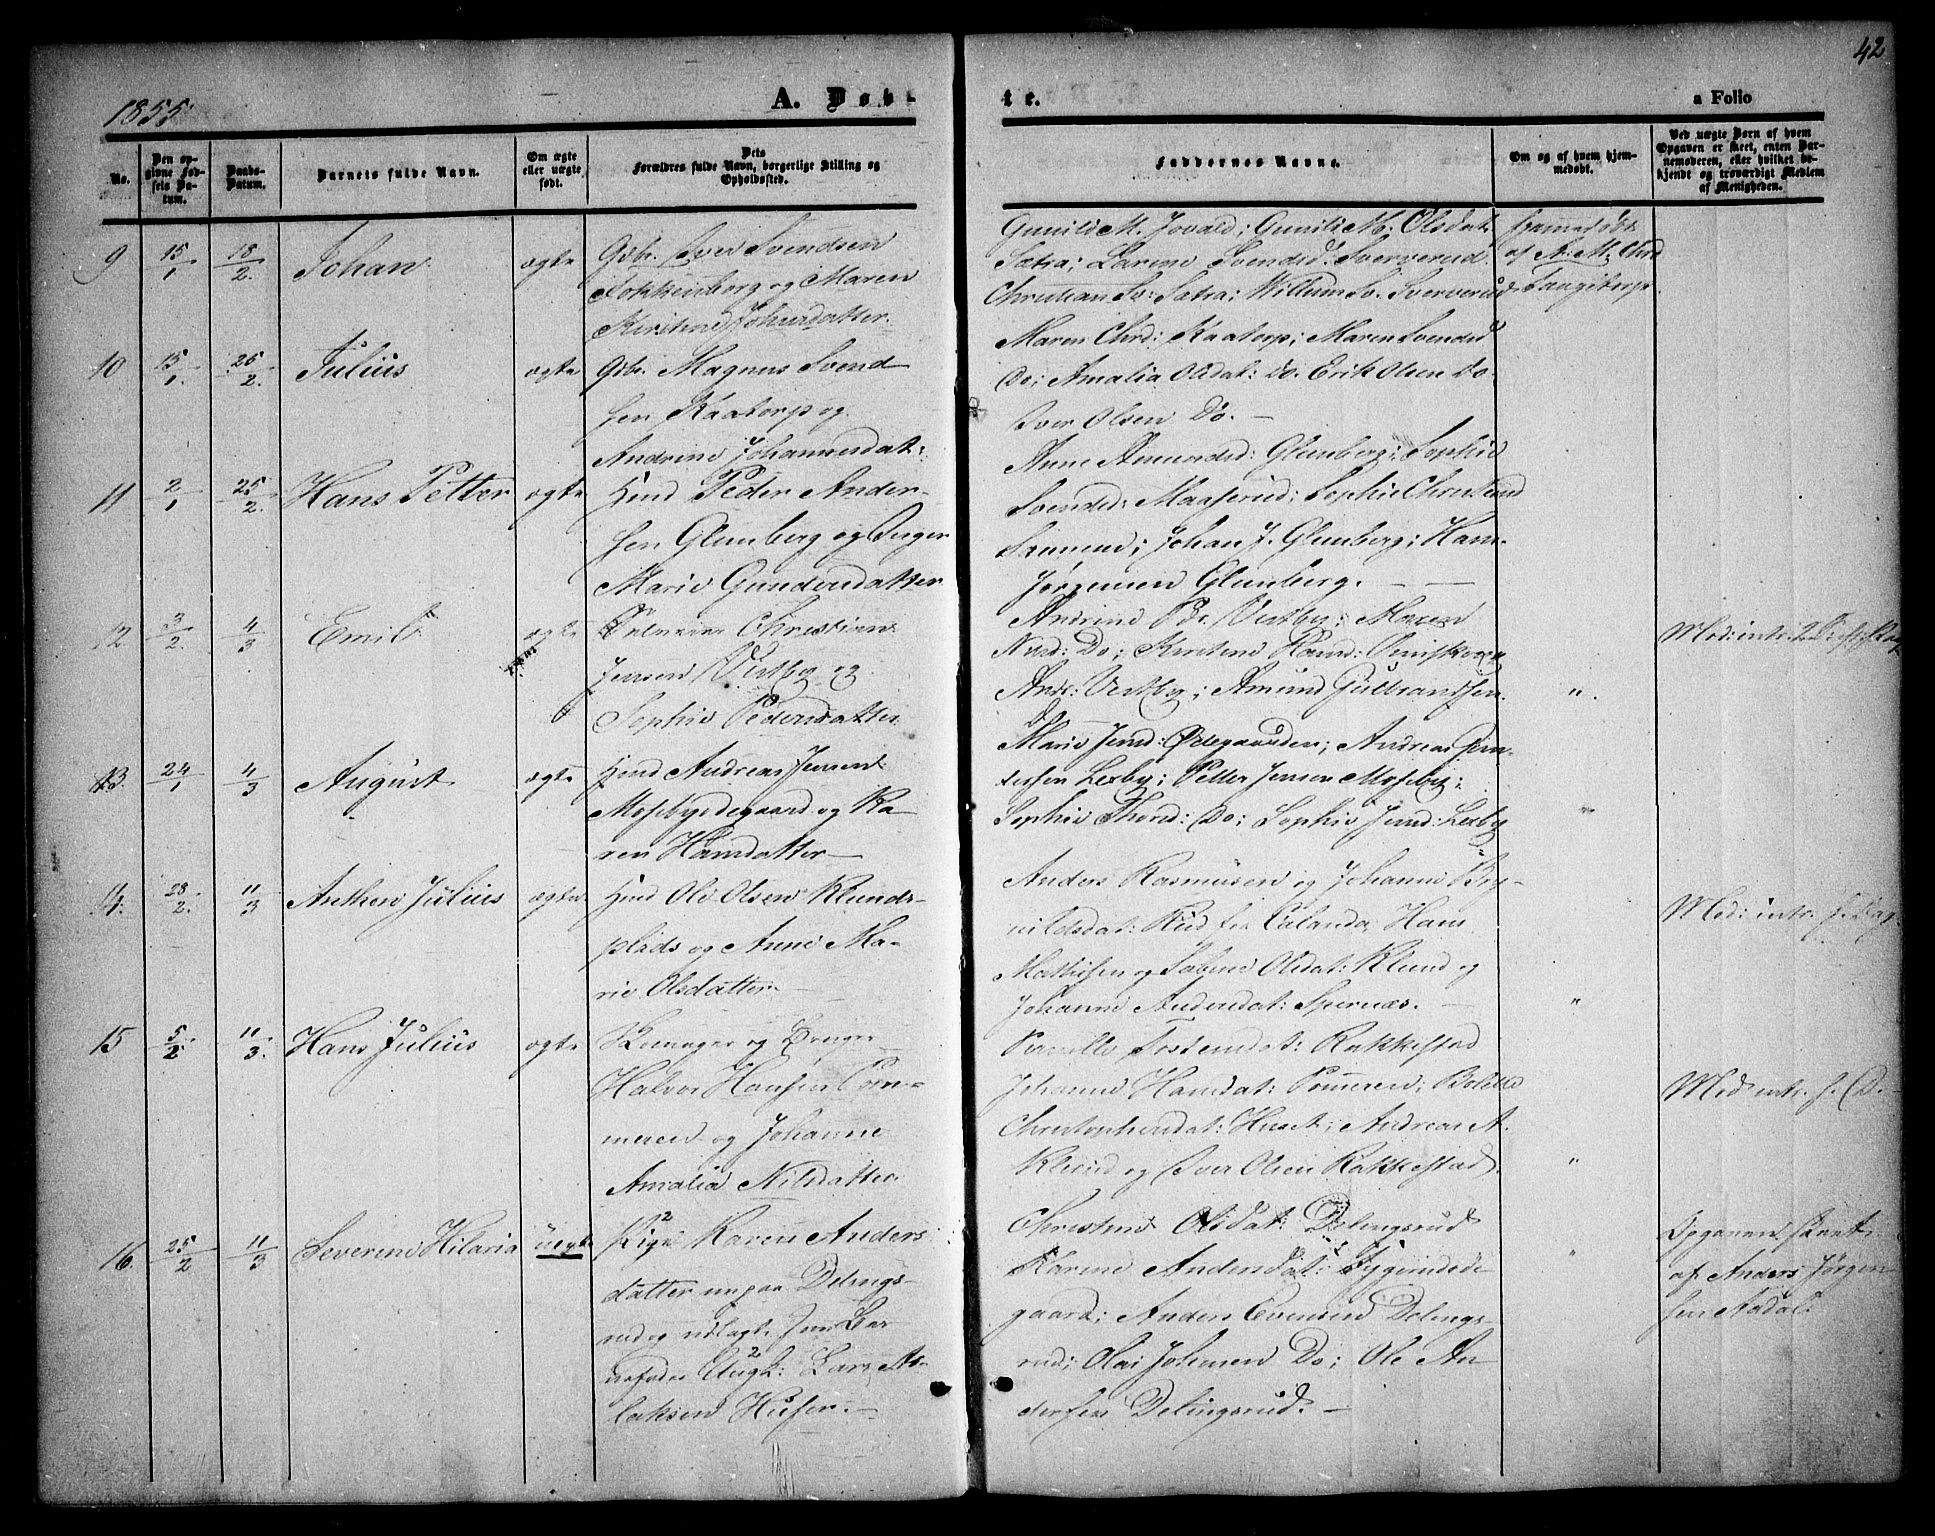 42
1855.
A. Døbte.
a Folio
No.
Den op-
givne Fød-
sels Da-
tum.
Daabs-
Datum.
Barnets fulde Navn.
Om ægte
eller uægte
født.
Dets
Forældres fulde Navn, borgerlige Stilling og
Opholdssted.
Faddernes Navne.
Om og af hvem hjem-
medøbt.
Ved uægte Børn af hvem
Opgaven er skeet, enten Bar-
nemoderen, eller hvilket be-
kjendt og troværdigt Medlem
af Menigheden.
9 15/1 18/2. Johan ægte Gbr. Iver Svendsen
Fokkenborg og Maren
Kirstine Johnsdatter.
Gunild M. Jovald; Gunild M. Olsdat:
Sætra; Larine Svendsd: Sververud
Christian Sv: Sætra; Willum Sv. Sververud
Hjemmedøbt
af A. M. Chrd
Tangetorp.
10 15/1. 25/2. Julius ægte Gbr. Magnus Svend
sen Kaatorp og
Andrine Johannesdat:
Maren Chrd: Kaatorp; Maren Svendsd
Do; Amalia Olsdat: Do. Erik Olsen Do.
Iver Olsen Do. —
11 2/1 25/2. Hans Petter ægte Hmd Peder Ander-
sen Glenberg og Inger
Marie Gundersdatter
Anne Amundsd: Glenberg; Sophie
Svendsd: Maaserud; Sophie Christensd
; Johan J. Glenberg; Hans
Jørgensen Glenberg. — —
12. 3/2. 4/3 Emil ægte Christian
Jensen Vestby og
Sophie Pedersdatter
Andrine Vestby; Maren
Do; Kirstine
Andr: Vestby; Amund Gulbrandsen
Mod: intr.
13. 24/1 4/3 August ægte Hmd Andreas Jensen
Mosebyødegaard og Ka-
ren Hansdatter —
Marie Jensd: Ødegaarden; Andreas
Lexby; Petter Jensen Moseby;
Sophie Thord: Do; Sophie Jensd: Lexby
14. 28/2. 11/3 Anthon Julius ægte Hmd Ole Olsen Klunds-
plads og Anne Ma-
rie Olsdatter —
Anders Rasmusen og Johanne Bry-
nildsdat: Hans
Mathisen og Sabine Olsdat: Klund og
Johanne Andersdat: Spernæs. —
"
Mod: intr. f. Dag.
15 5/2. 11/3. Hans Julius ægte
Halvor Hansen Pom-
meren og Johanne
Amalia Nilsdatter.
Pernille Tostensdat: Rakkestad
Johanne Hansdat: Pomeren; Bolette
Christophersdat: Huset; Andreas A.
Klund og Iver Olsen Rakkestad.
"
Mod intr. f. D.
16 25/2 11/3 Severine Hilaria uægte Pige Karen Anders
datter paa Delings-
rud og udlagt Bar
nefader Ungk: Lars As-
laksen Husen. —
Christine Olsdat: Delingsrud
Karine Andersdat:
gaard; Anders Evensen Delings-
rud; Olai Johnsen Do; Ole An
dersen Delingsrud. —
"
Opgaven skeet
af Anders Jørgen
sen Aadal.